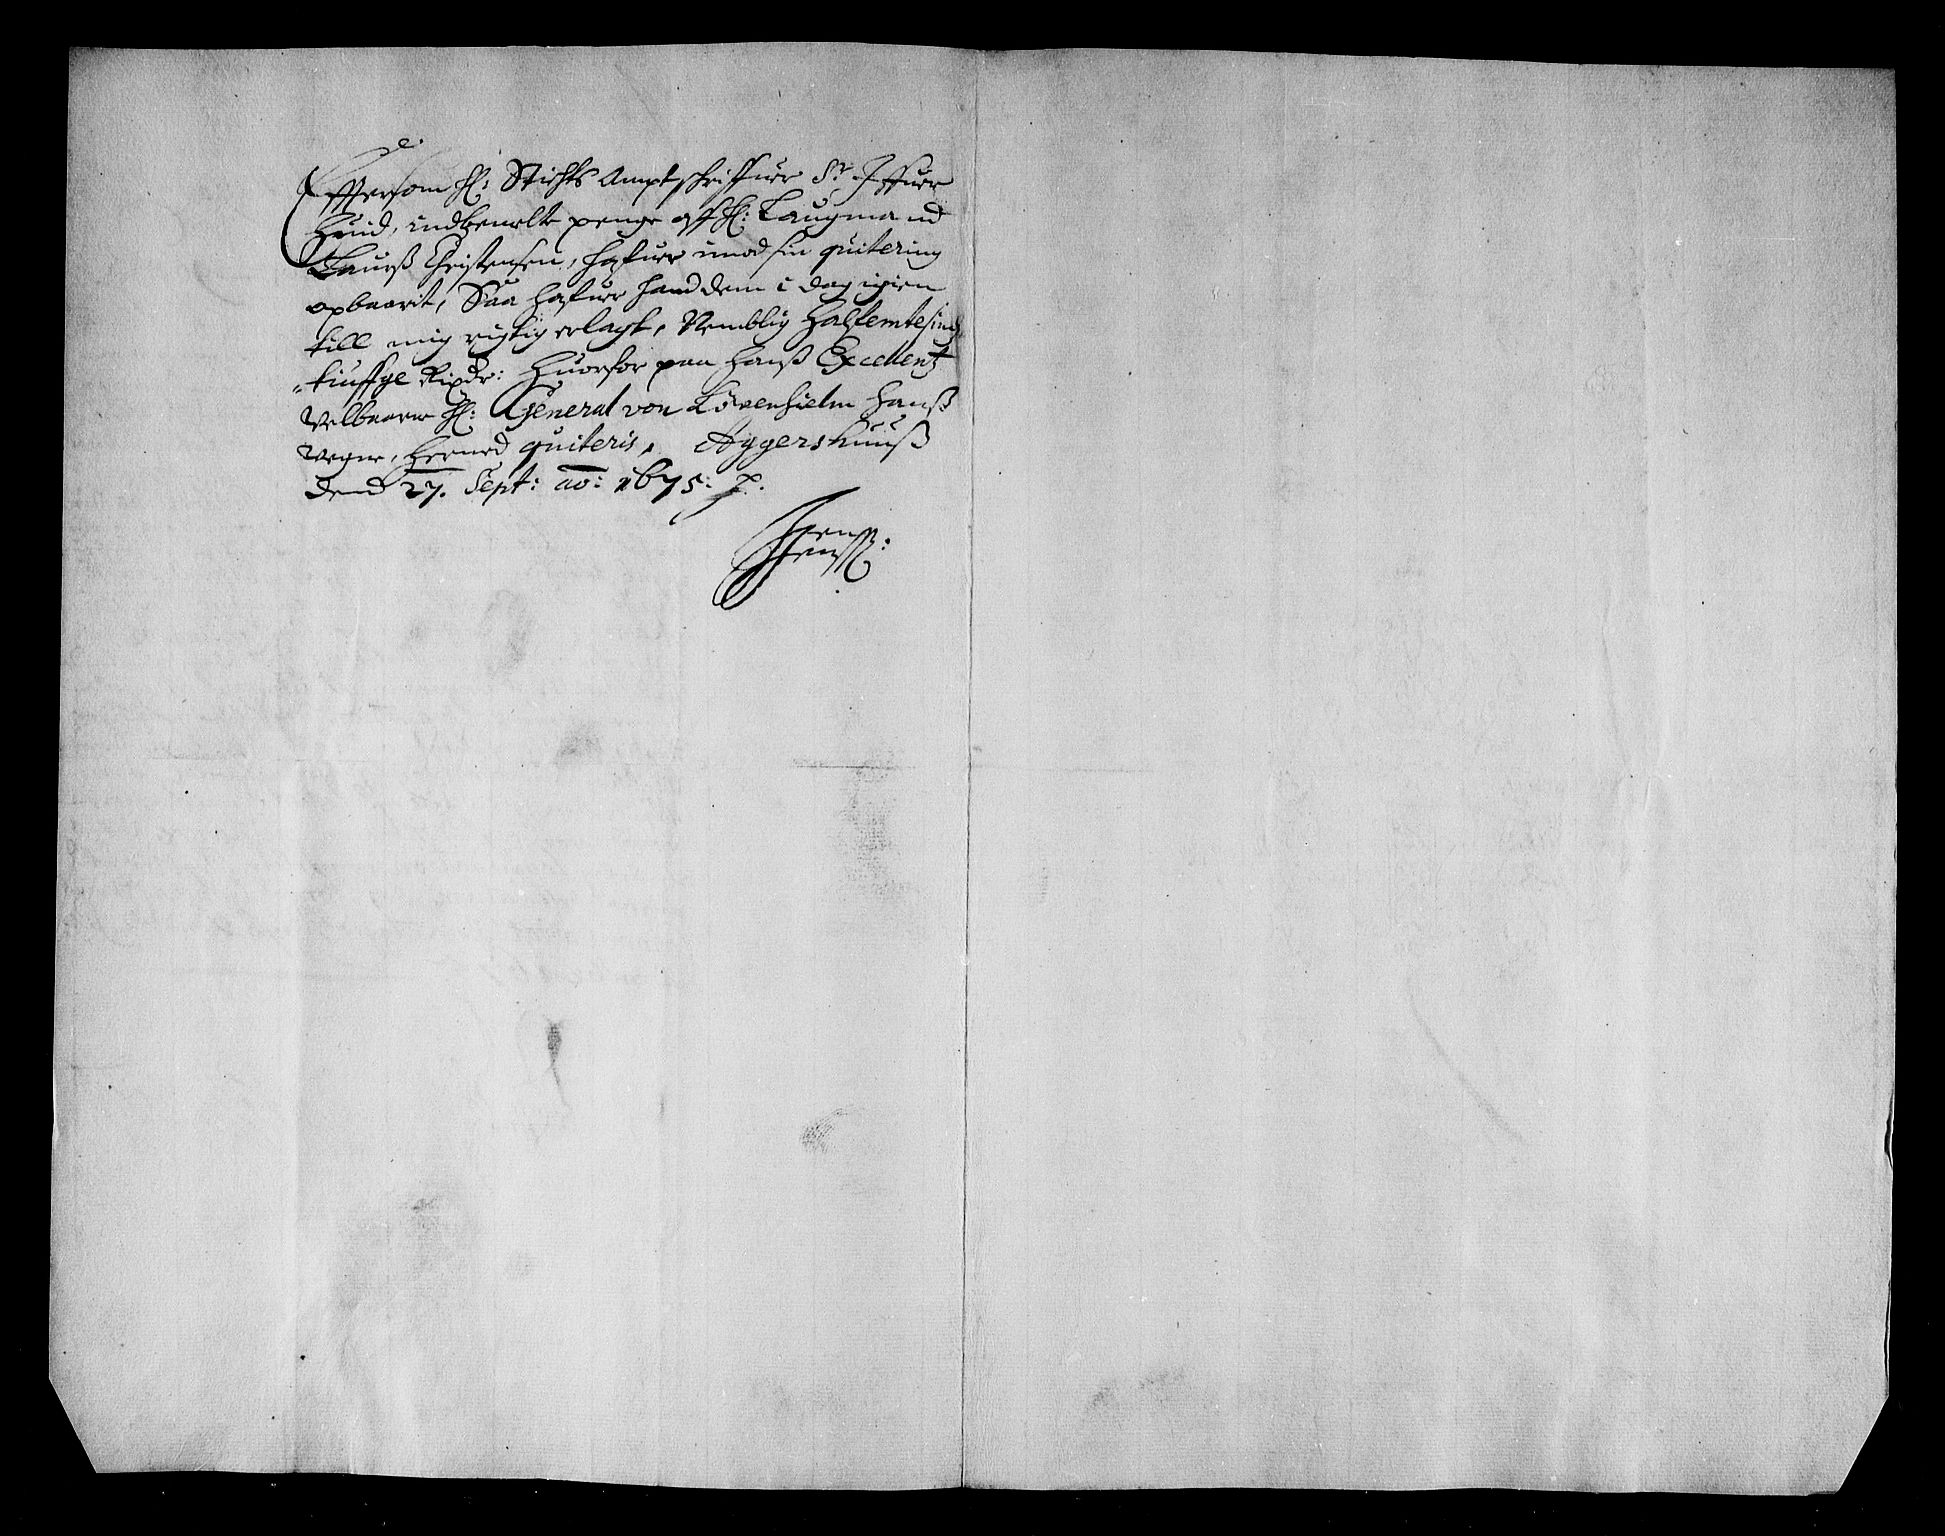 Effterson hl: Stichts Amptschriffuer Sr. Iffuer
Huid, indbemelte penge aff hl: Laugmand
Laurß Christensen, hafuer imod sin quitering
opbaarit, Saa hafuer hand dem i dag igien
till mig rigtig erlagt, Nemblig halfemtesinds
"tiuffge Rixdr: Huorfor paa hanß Excellentz
Velbaarne hl: General von Løvenhielm hanß
vegne, hermed quiteris, Aggershuuß
dend 27. Sept: ao: 1675: p.
Jens
Jenss: